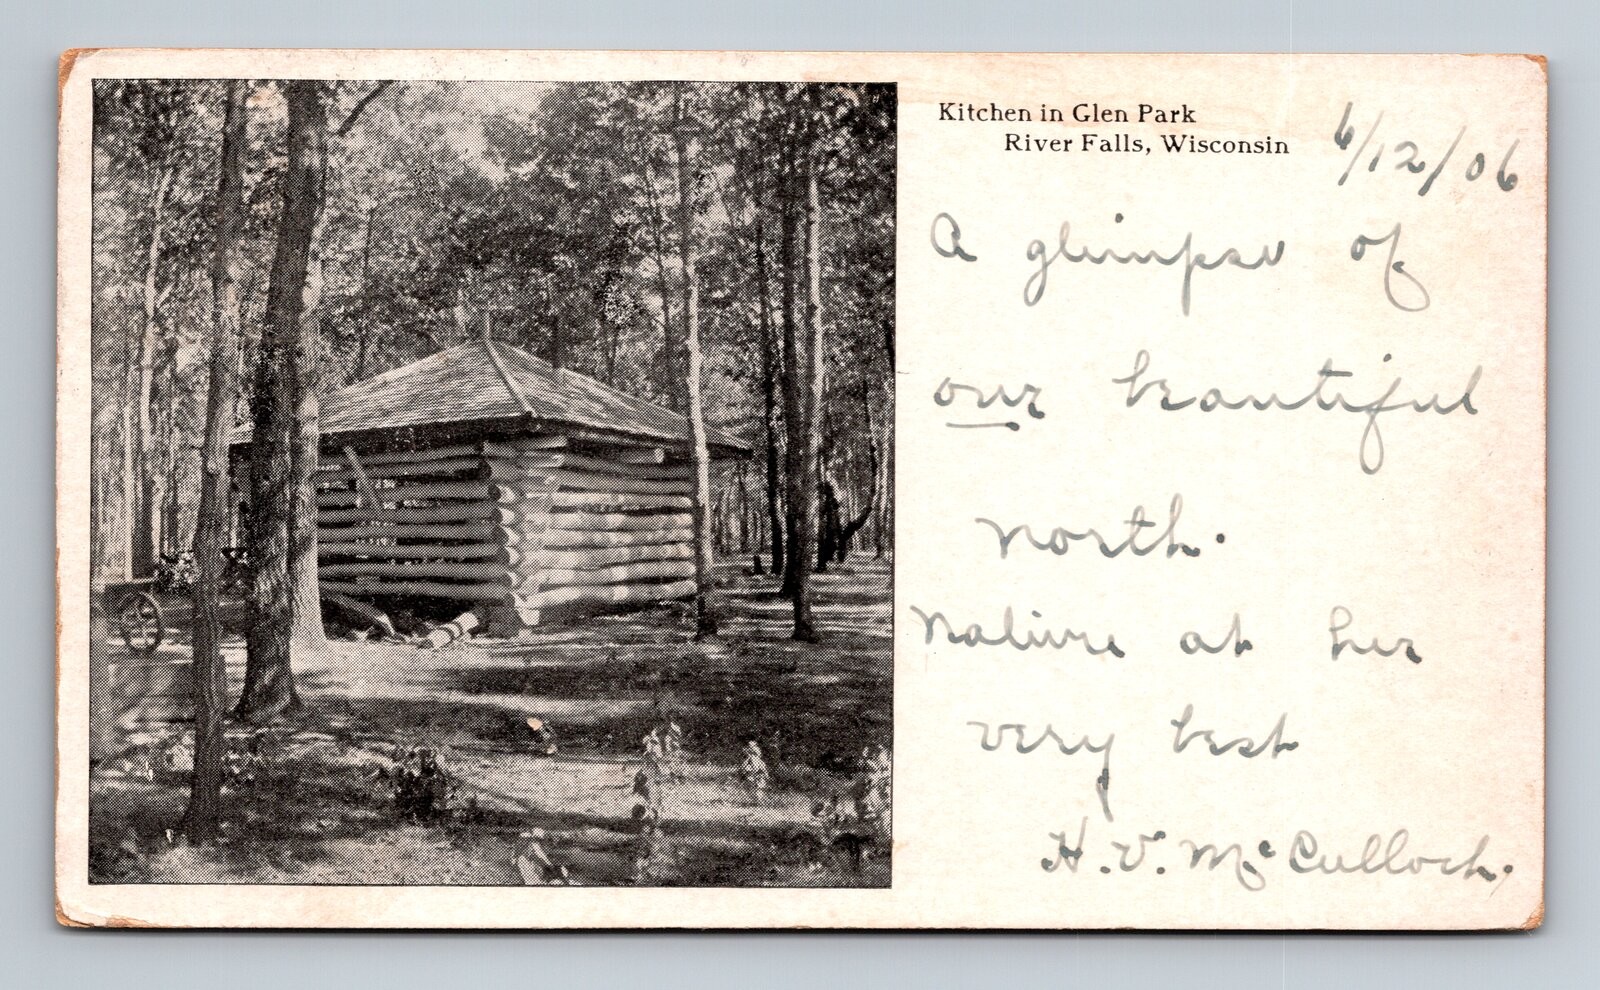 Kitchen in Glen Park
River Falls, Wisconsin
6/12/06
A glimpse of
our beautiful
north.
Nature at her
very best
H. V. McCulloch.